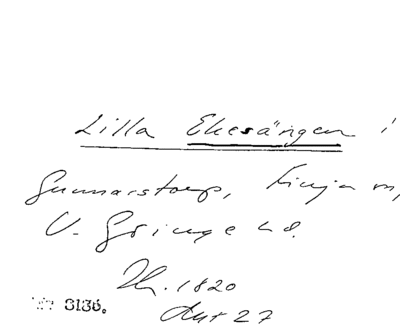 Lilla Ekesängen i
Gunnarstorp, Finja sn,
V. Göinge hd.
Zh. 1820
Akt 27
3136.